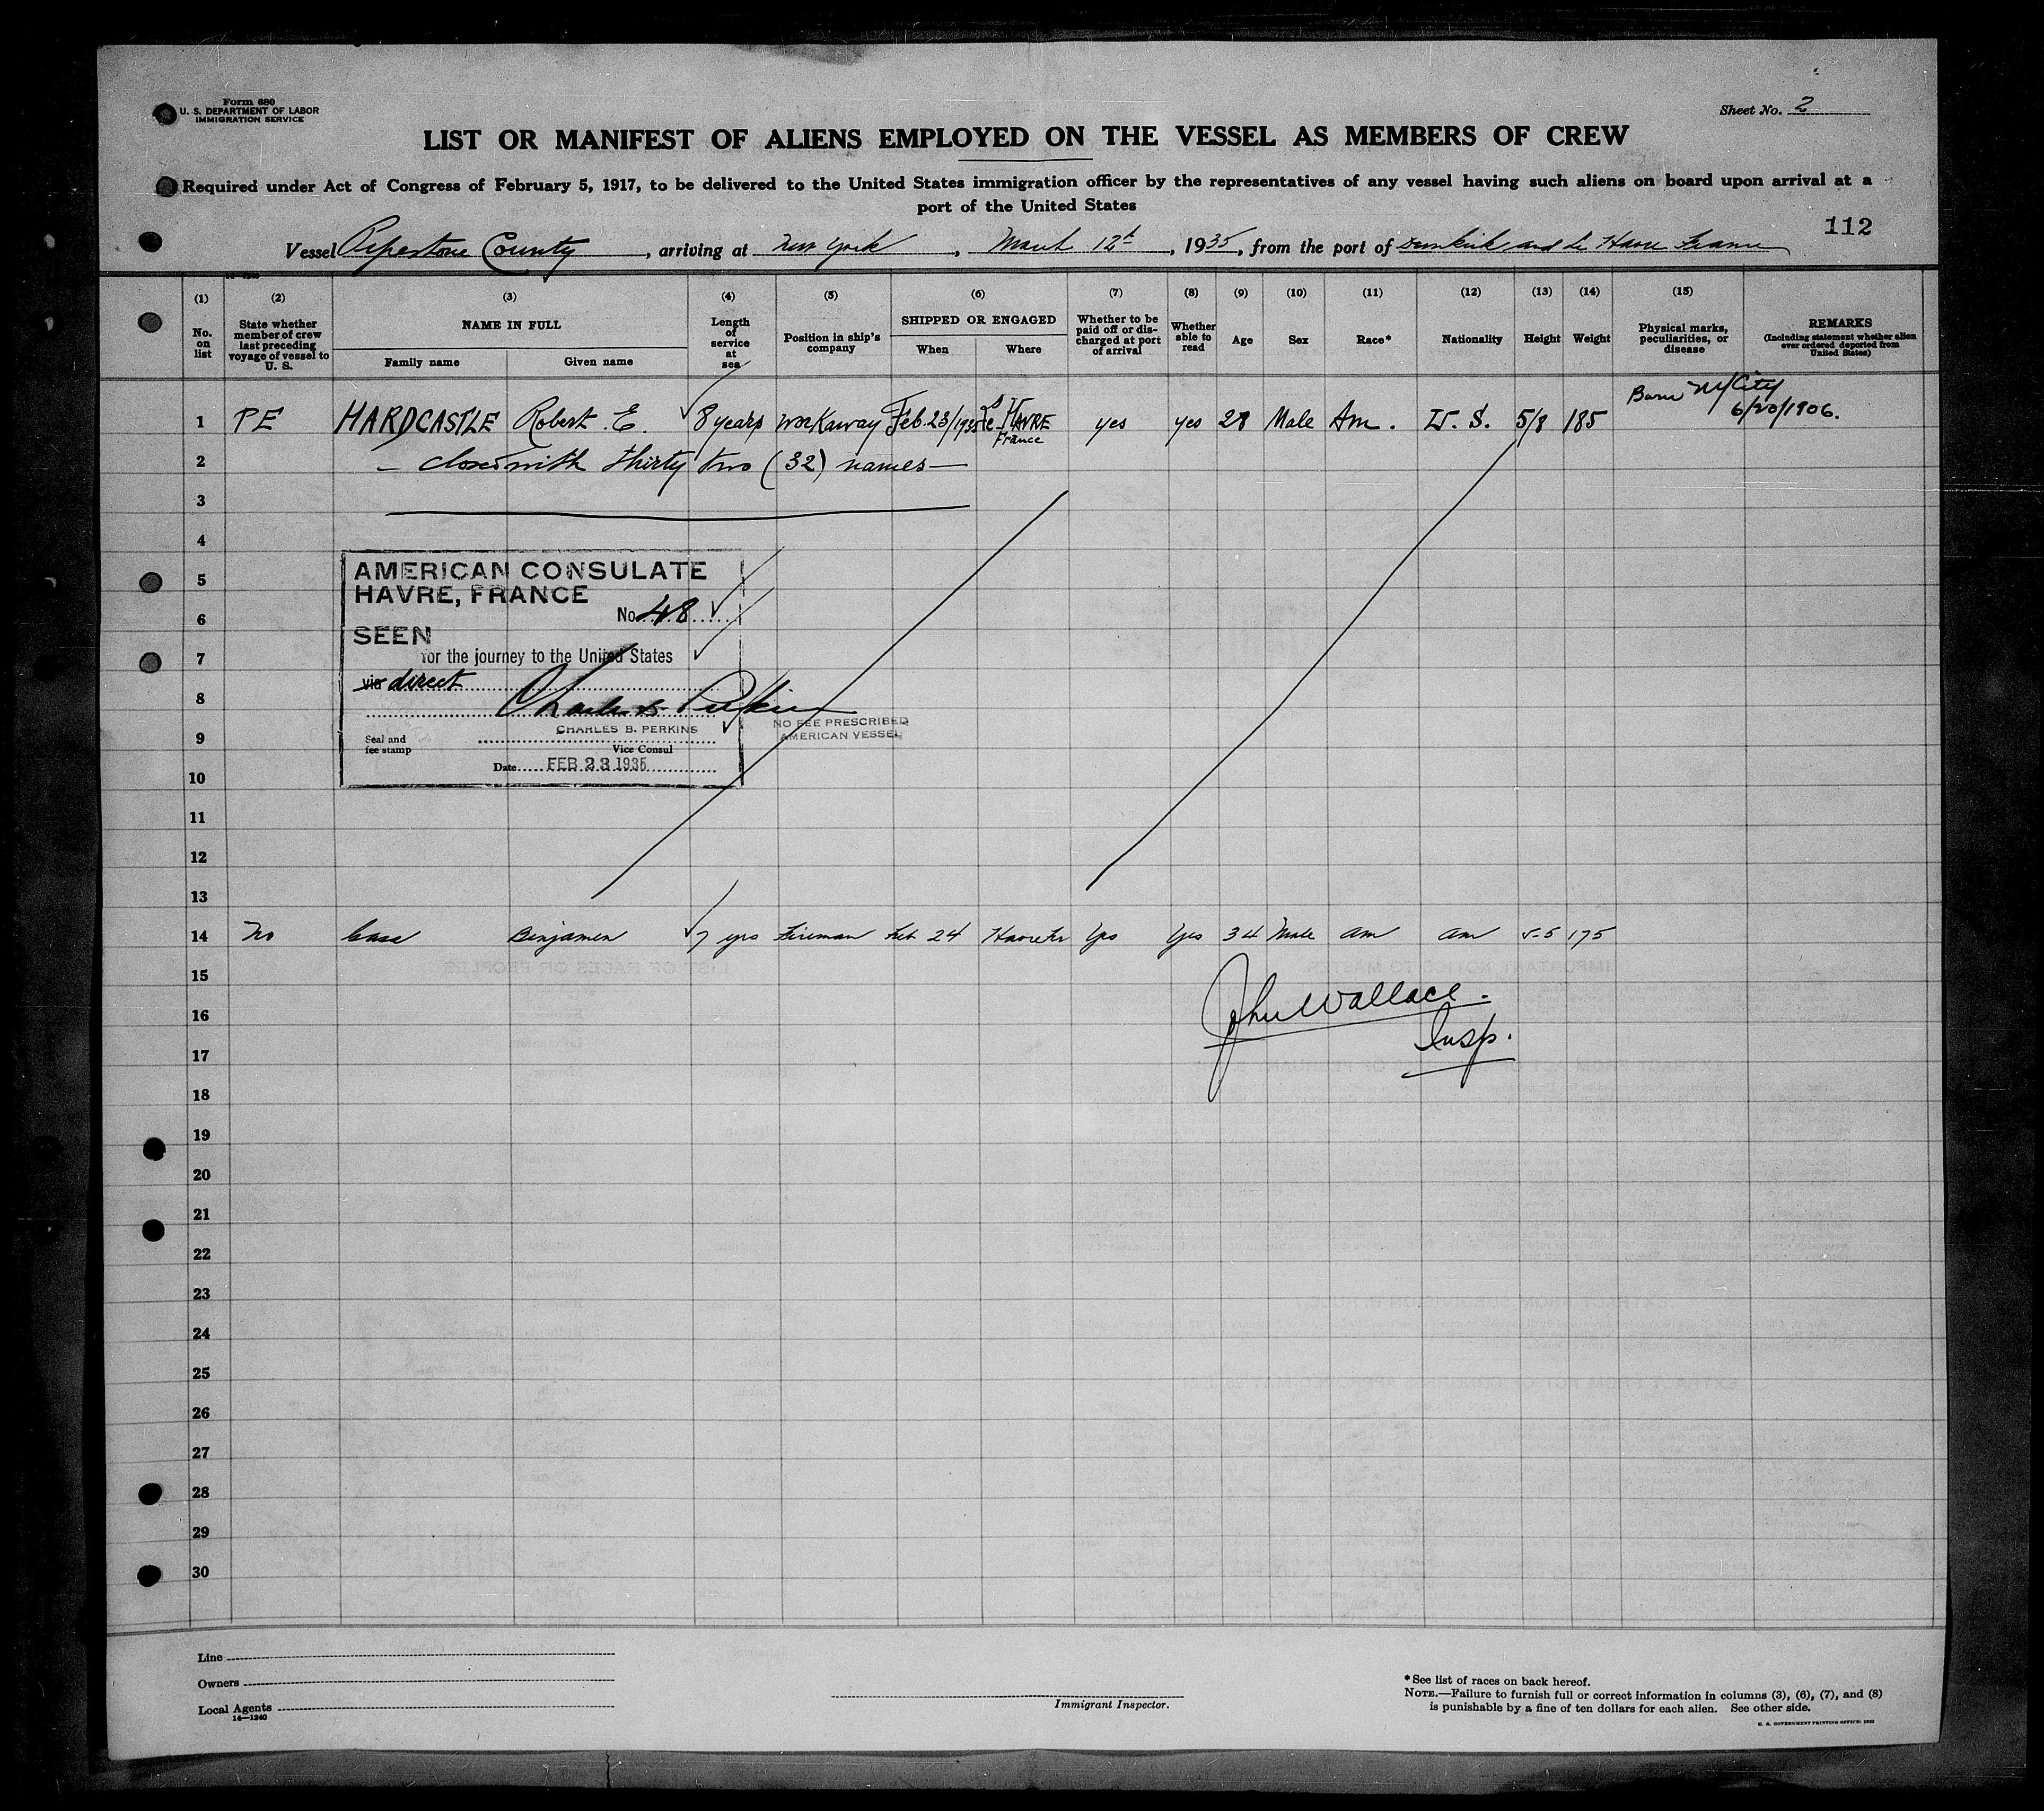 Form 680
U. S. DEPARTMENT OF LABOR
IMMIGRATION SERVICE
Sheet No. 2
LIST OR MANIFEST OF ALIENS EMPLOYED ON THE VESSEL AS MEMBERS OF CREW
Required under Act of Congress of February 5, 1917, to be delivered to the United States immigration officer by the representatives of any vessel having such aliens on board upon arrival at a
port of the United States
112
Vessel Pipestone County, arriving at New York, March 12th, 1935, from the port of Dunkirk and Le Havre France
(1) (2) (3) (4) (5) (6) (7) (8) (9) (10) (11) (12) (13) (14) (15)
No. on list
State whether member of crew last preceding voyage of vessel to U. S.
NAME IN FULL
Family name Given name
Length of service at sea
Position in ship's company
SHIPPED OR ENGAGED
When Where
Whether to be paid off or discharged at port of arrival
Whether able to read
Age
Sex
Race*
Nationality
Height
Weight
Physical marks, peculiarities, or disease
REMARKS
(Including statement whether alien ever ordered deported from United States)
Born NY City
6/20/1906.
1 PE HARDCASTLE Robert E. 8 years workaway Feb. 23/1935 Le HAVRE France yes yes 28 Male Am. U. S. 5/8 185
2 — closed with thirty two (32) names —
3
4
AMERICAN CONSULATE
5
HAVRE, FRANCE
No. 48
6
SEEN
7 for the journey to the United States
via direct
8 Charles B. Perkins
NO FEE PRESCRIBED
CHARLES B. PERKINS
9 Seal and fee stamp
AMERICAN VESSEL
Vice Consul
Date FEB 23 1935
10
11
12
13
14 No Benjamen 7 yrs Fireman Feb 24 Havre Fr Yes Yes 34 Male Am Am 5-5 175
15
John Wallace.
16
Insp.
17
18
19
20
21
22
23
24
25
26
27
28
29
30
Line
Owners
Local Agents
14—1240
Immigrant Inspector.
* See list of races on back hereof.
NOTE.—Failure to furnish full or correct information in columns (3), (6), (7), and (8)
is punishable by a fine of ten dollars for each alien. See other side.